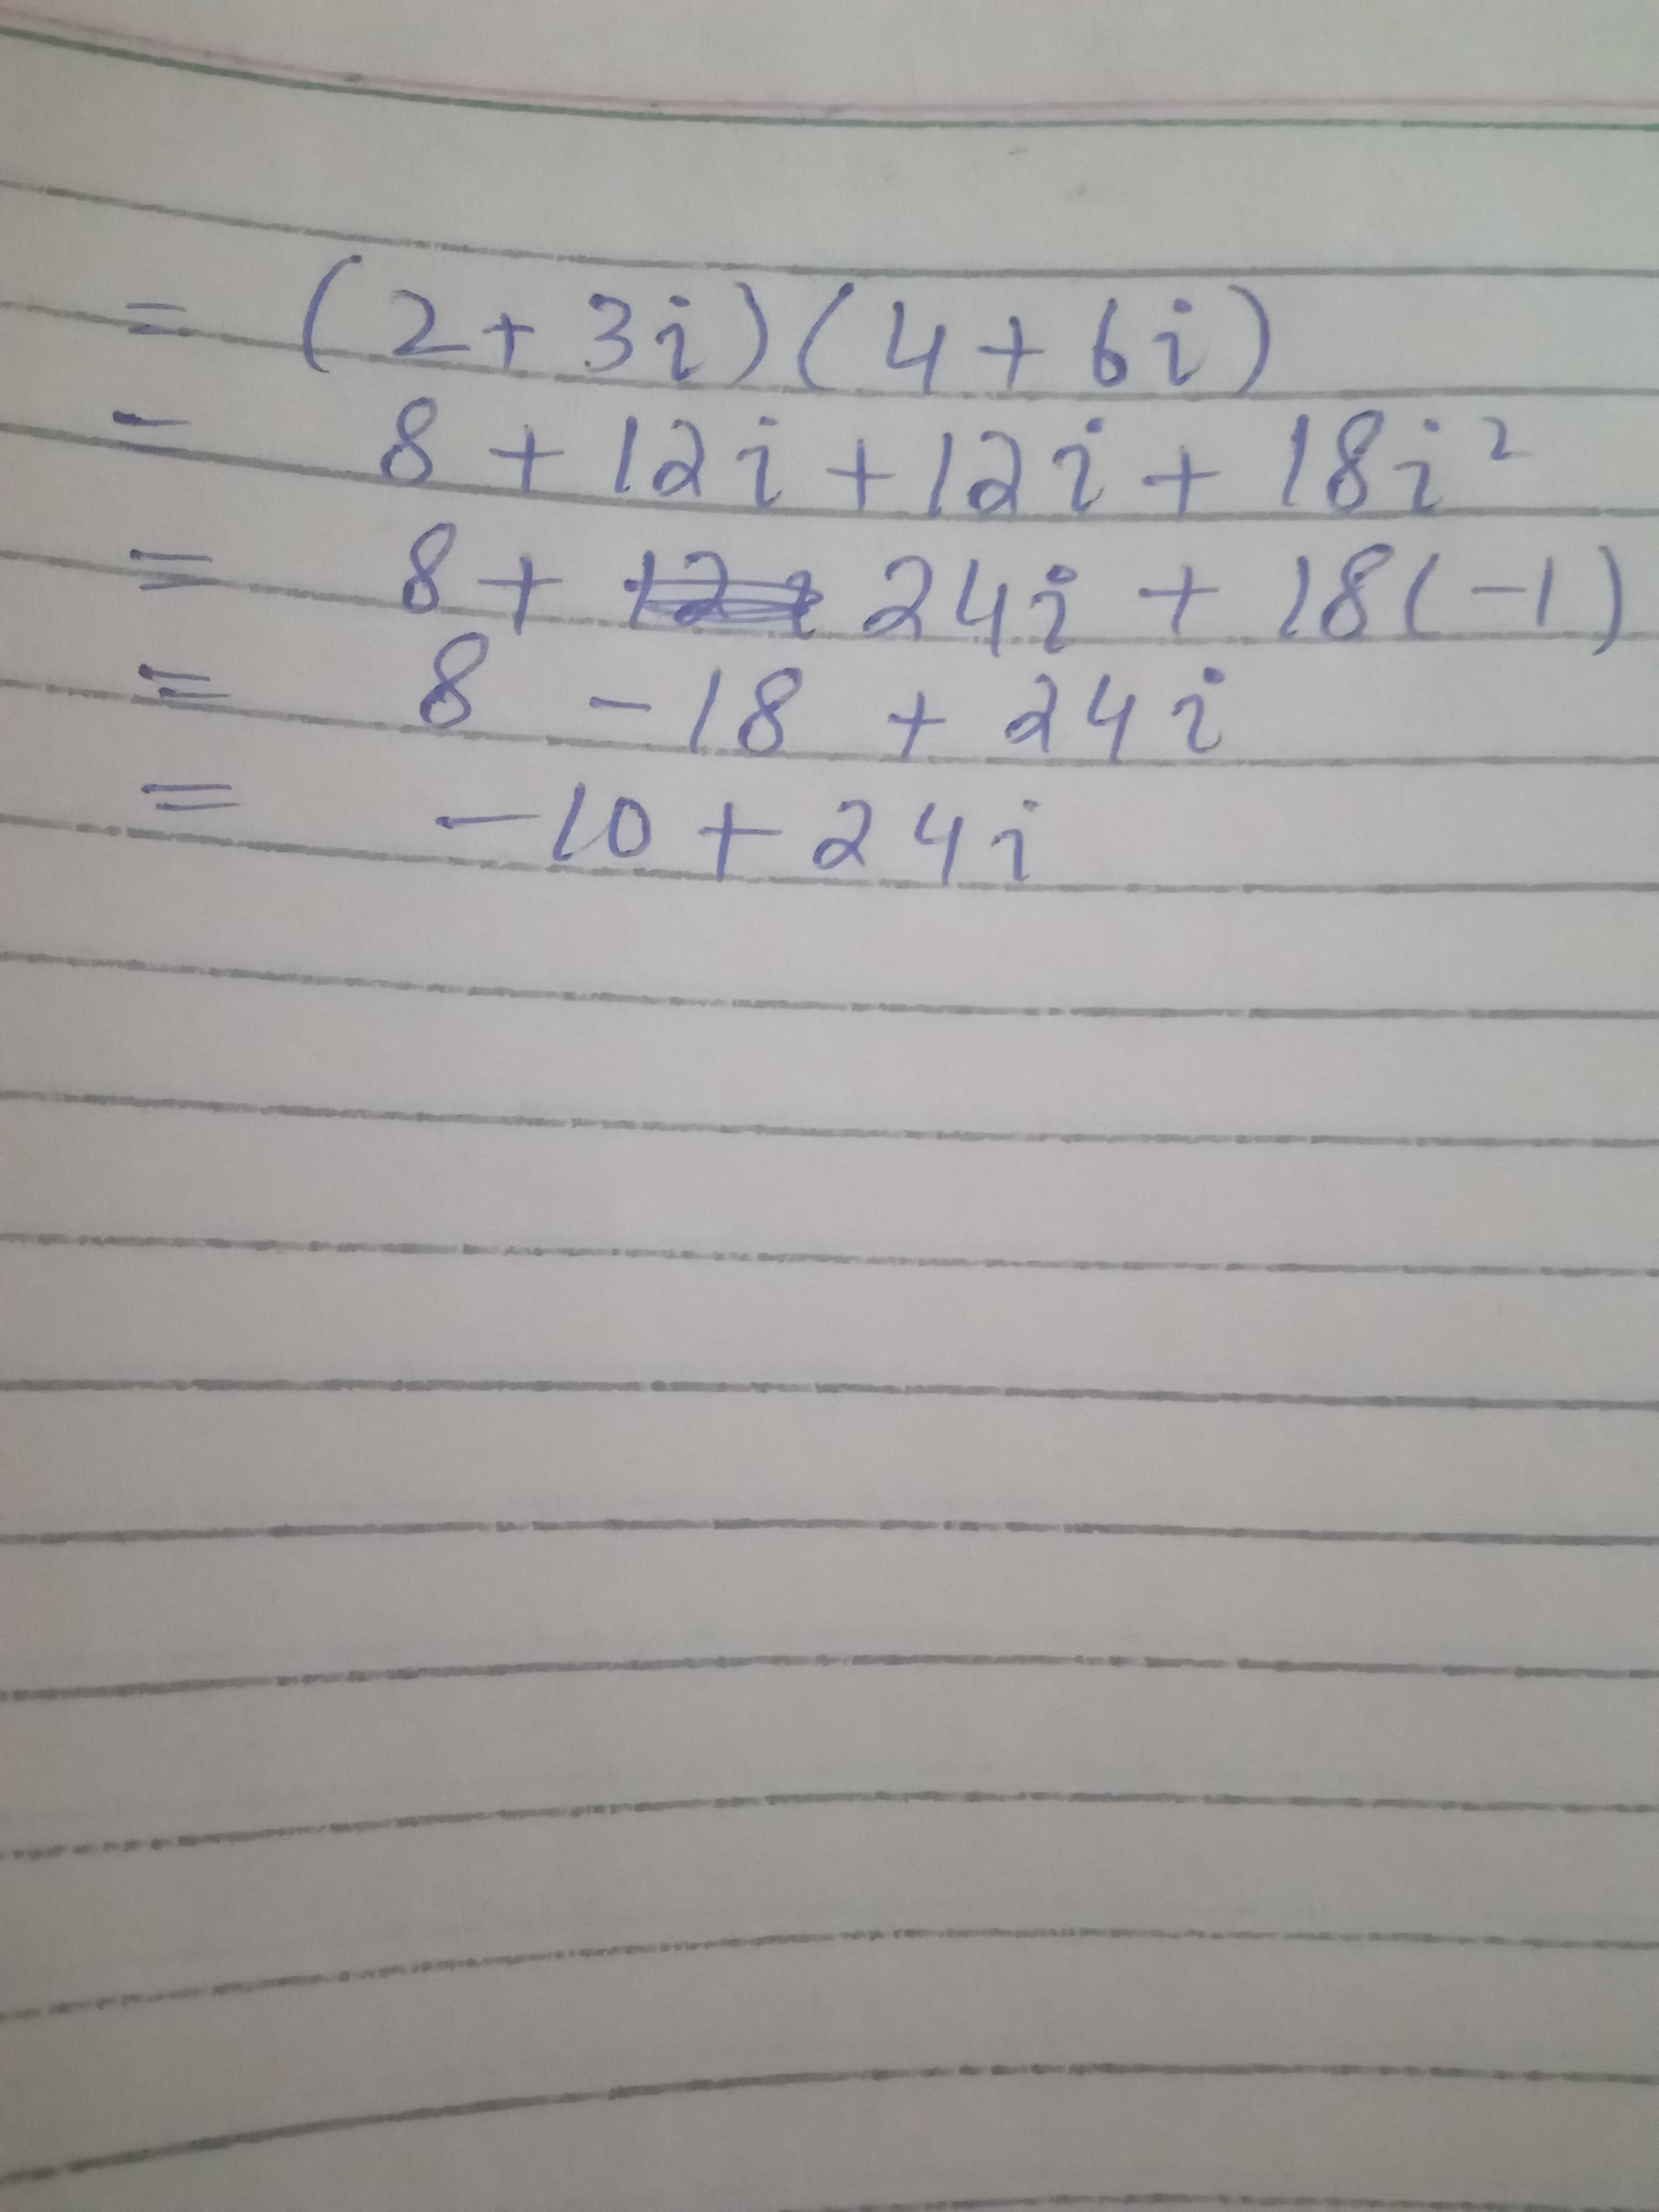 = (2 + 3i)(4 + 6i)
- 8 + 12i + 12i + 18i²
= 8 + 24i + 18(-1)
= 8 - 18 + 24i
= -10 + 24i